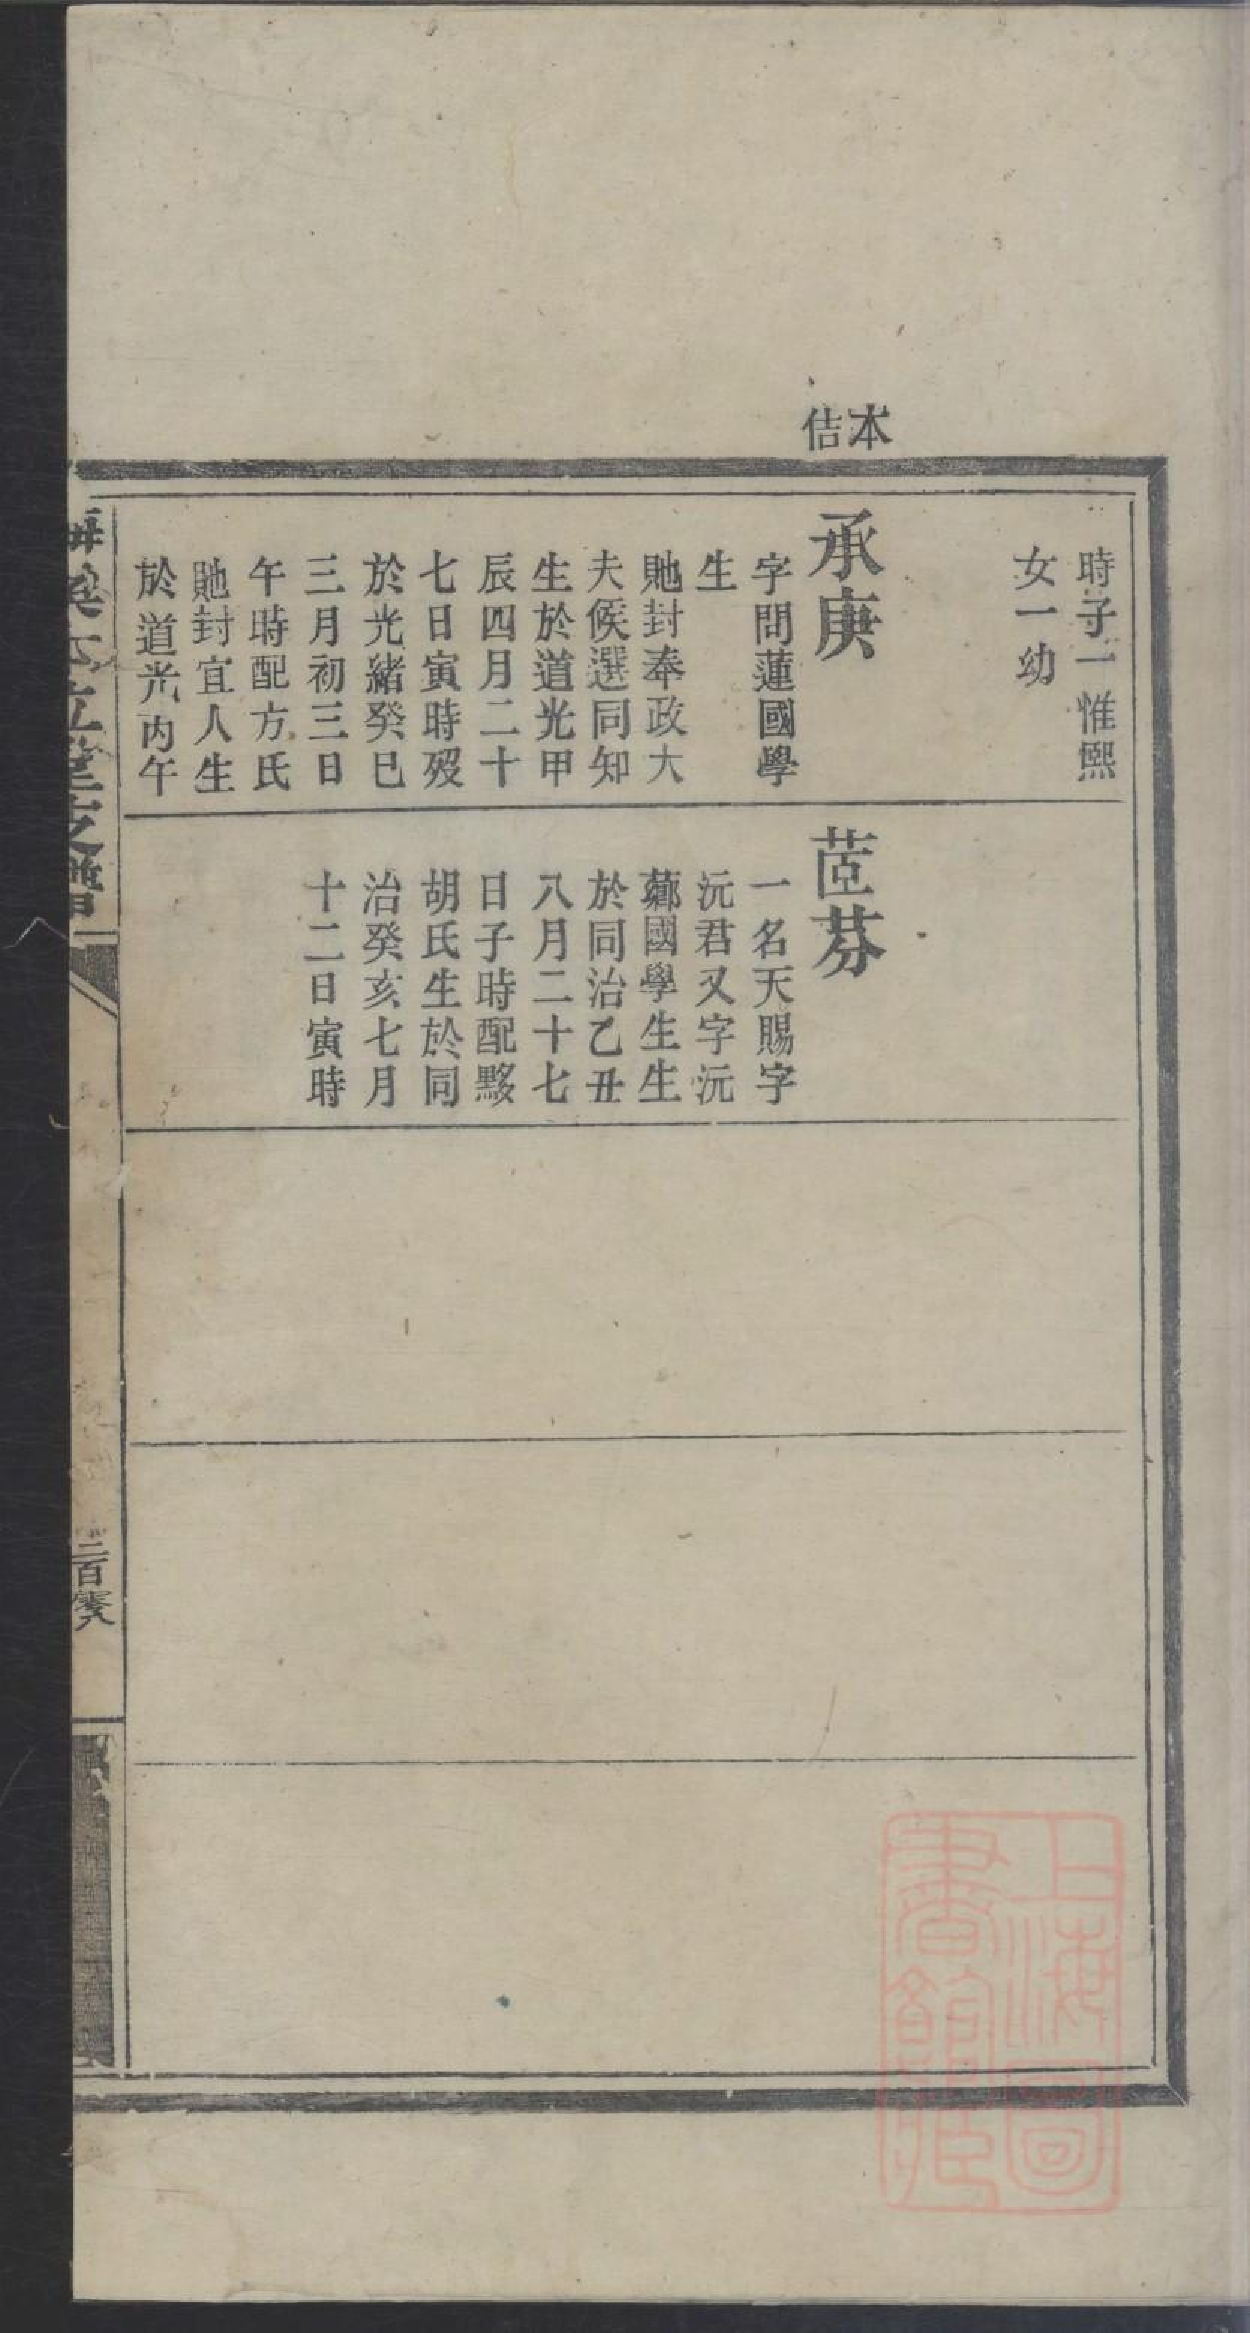 本
佶
時子一惟熙
女一幼
承庚
字問蓮國學
生
貤封奉政大
夫候選同知
生於道光甲
辰四月二十
七日寅時歿
於光緒癸巳
三月初三日
午時配方氏
貤封宜人生
於道光丙午
茝芬
一名天賜字
沅君又字沅
薌國學生生
於同治乙丑
八月二十七
日子時配黟
胡氏生於同
治癸亥七月
十二日寅時
支譜
三百零八
上海圖
書館藏